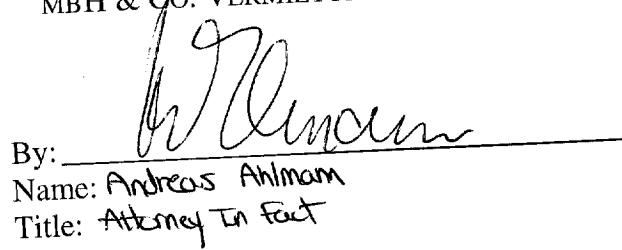 MBH & CO. VERMIET
By:
Name: Andreas Ahlmann
Title: Attorney In Fact